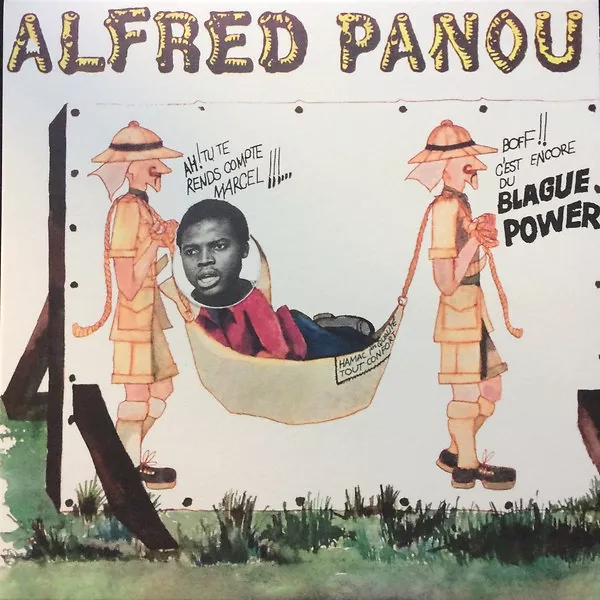 ALFRED PANOU
AH! TU TE
RENDS COMPTE
MARCEL !!!...
BOFF!!
C'EST ENCORE
DU
BLAGUE.
POWER
HAMAC 1ère QUALITÉ
TOUT CONFORT